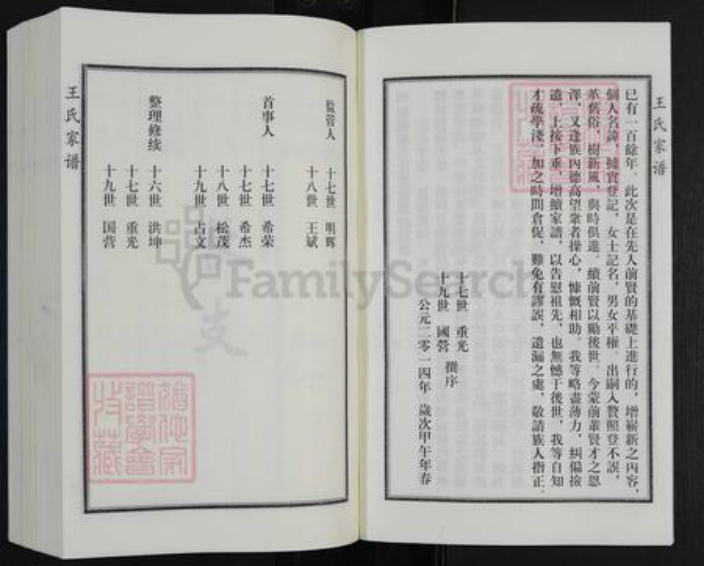 王氏家谱
已有一百餘年。此次是在先人前賢的基礎上進行的，增嶄新之內容，
個人名諱，據實登記，女士記名，男女平權。出嗣入贅照登不誤，
革舊俗，樹新風，與時俱進。續前賢以勵後世。今蒙前輩賢才之恩
澤，又逢族內德高望衆者操心，慷慨相助。我等略盡薄力，糾偏撿
遺，上接下垂，增續家譜，以告慰祖先，也無憾于後世，我等自知
才疏學淺，加之時間倉促，難免有謬誤，遺漏之處，敬請族人指正。
十七世 重光
十九世 國營 撰序
公元二零一四年 歲次甲午年春
監管人 十七世 明辉
十八世 王斌
首事人 十七世 希荣
十七世 希杰
十八世 松茂
十九世 占文
整理修续 十六世 洪坤
十七世 重光
十九世 国营
王氏家谱
FamilySearch